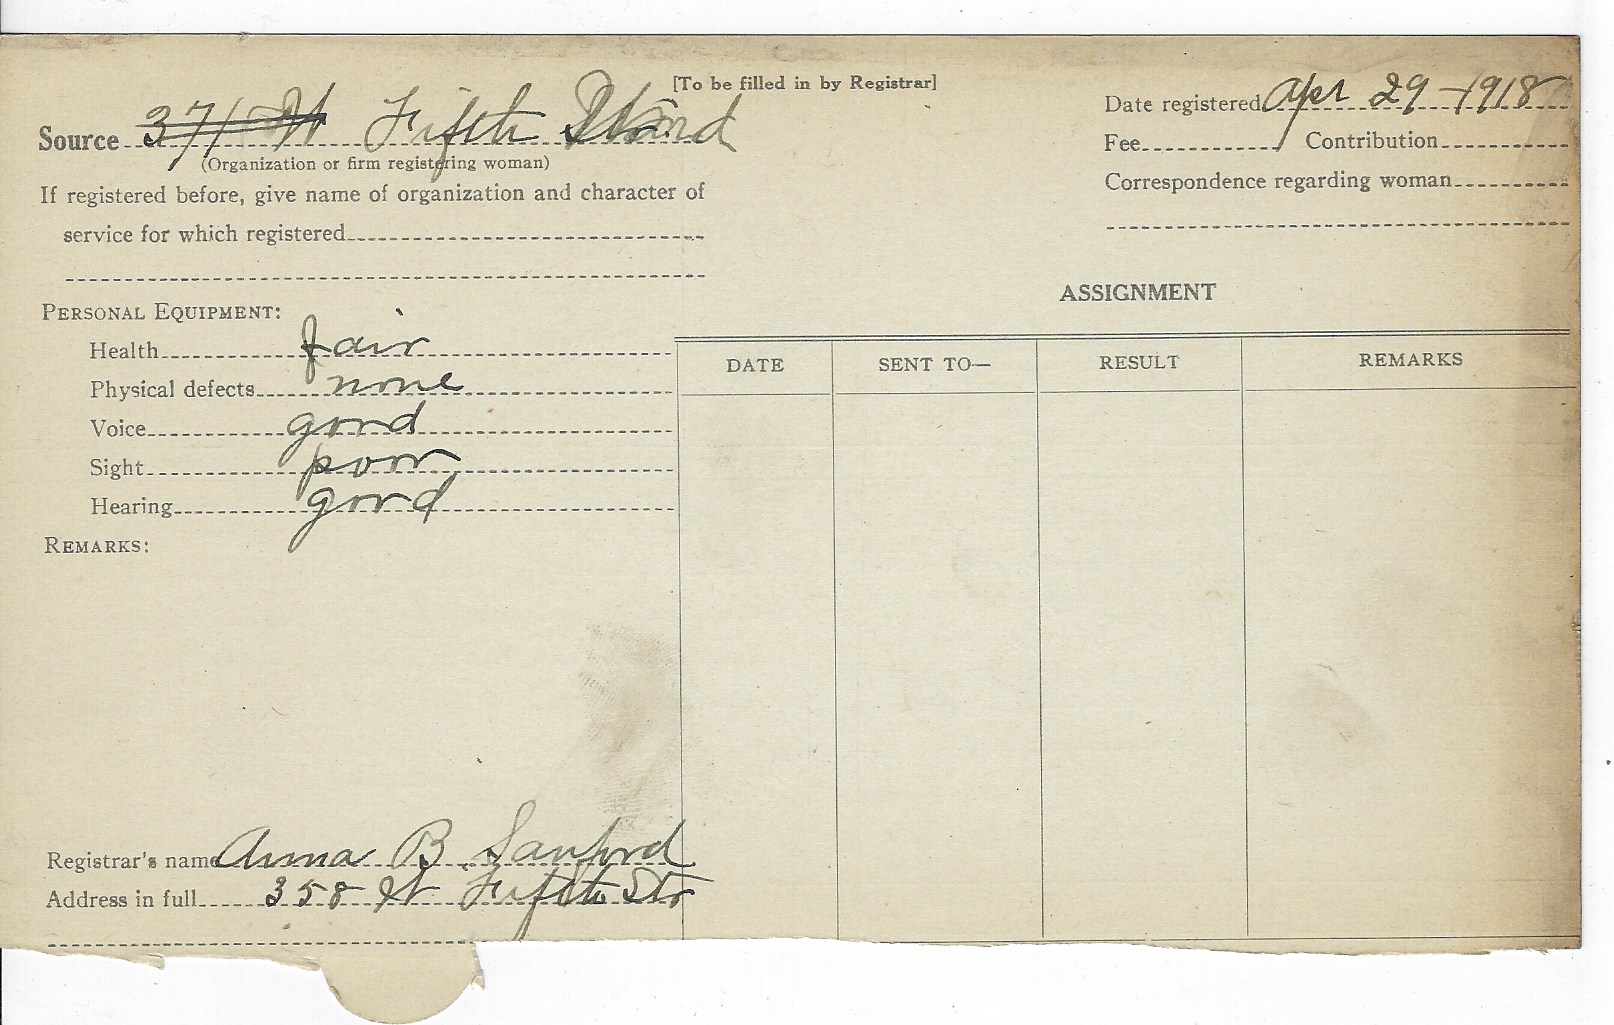 [To be filled in by Registrar]
Source 371 W Fifth
(Organization or firm registering woman)
If registered before, give name of organization and character of
service for which registered
Date registered Apr 29-1918
Fee Contribution
Correspondence regarding woman
ASSIGNMENT
PERSONAL EQUIPMENT:
Health fair
Physical defects none
Voice good
Sight poor
Hearing good
REMARKS:
DATE SENT TO— RESULT REMARKS
Registrar's name Anna B Sanford
Address in full 358 W Fifth Str